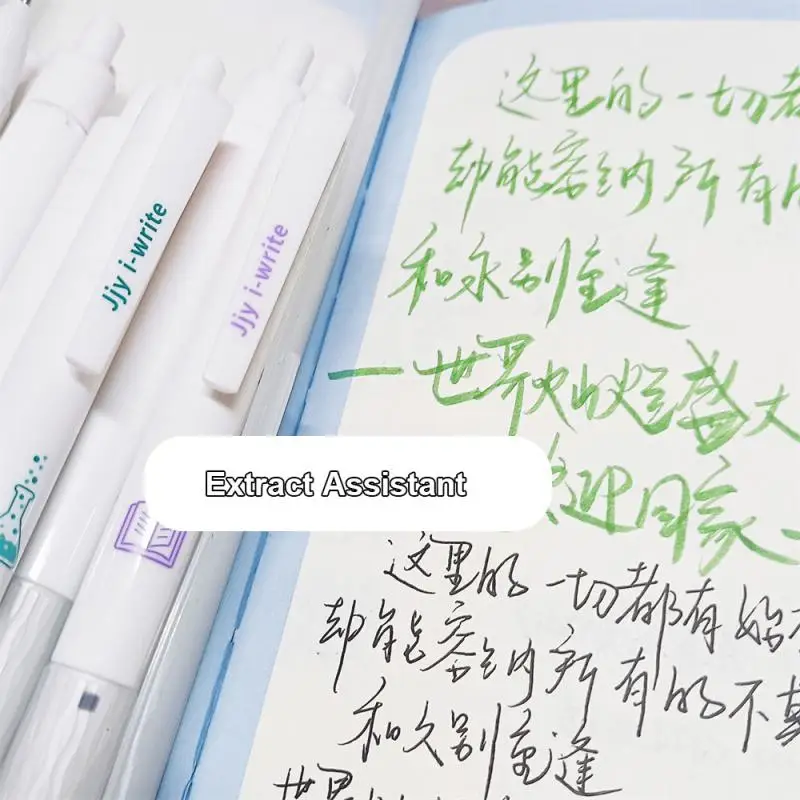 Jjy i-write
Jjy i-write
这里的一切都
却能容纳所有
和永别重逢
一世界灿烂盛大
Extract Assistant
欢迎回家
这里的一切都有始
却能容纳所有的不
和久别重逢
世界